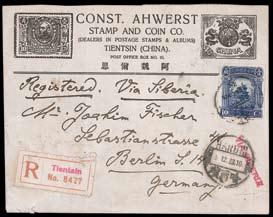 CONST. AHWERST
STAMP AND COIN CO.
(DEALERS IN POSTAGE STAMPS & ALBUMS)
TIENTSIN (CHINA).
POST OFFICE BOX NO.
CHINA
Registered. Via Siberia.
Mr. Joachim Fischer
Sebastianstrasse
Berlin S. 14
Germany
R
Tientsin
No. 8427